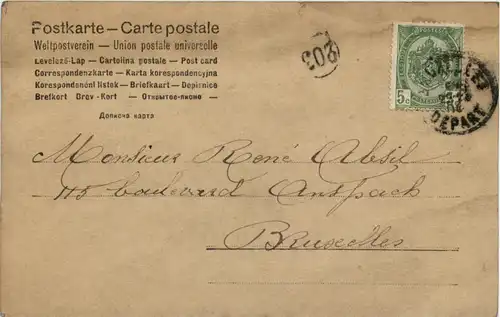 Postkarte – Carte postale
Weltpostverein – Union postale universelle
Levelező-Lap – Cartolina postale – Post card
Correspondenzkarte – Karta korespondencyjna
Korespondenční lístek – Briefkaart – Dopisnice
Brefkort – Brev-Kort – Открытое письмо
Дописна карта
203
5c
DEPART
Monsieur René Absil
115 boulevard Anspach
Bruxelles